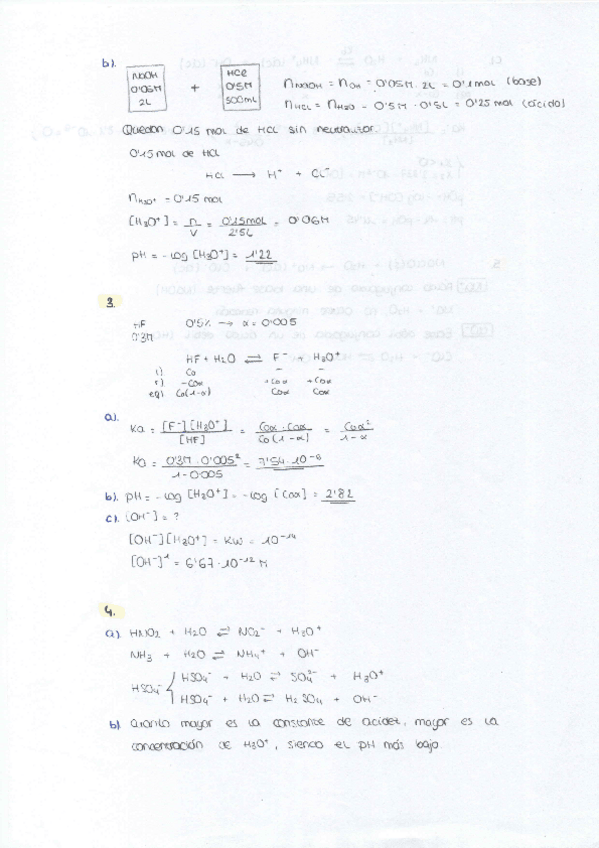 b).
NaOH
0'05M
2L
+
HCl
0'5M
500mL
nNaOH = nOH = 0'05M · 2L = 0'1mol (base)
nHCL = nH3O = 0'5M · 0'5L = 0'25mol (ácido)
Quedan 0'15 mol de HCl sin neutralizar
0'15 mol de HCl
HCl ⟶ H⁺ + Cl⁻
nH3O⁺ = 0'15 mol
[H3O⁺] = n/V = 0'15mol/2'5L = 0'06M
pH = -log [H3O⁺] = 1'22
3.
HF 0'5% → α = 0'005
0'3M
HF + H2O ⇌ F⁻ + H3O⁺
i) Co – –
r) -Coα +Coα +Coα
eq) Co(1-α) Coα Coα
a). Ka = [F⁻][H3O⁺]/[HF] = Coα · Coα/Co(1-α) = Coα²/1-α
Ka = 0'3M · 0'005²/1-0'005 = 7'54·10⁻⁶
b). pH = -log [H3O⁺] = -log [Coα] = 2'82
c). [OH⁻] = ?
[OH⁻][H3O⁺] = Kw = 10⁻¹⁴
[OH⁻] = 6'67·10⁻¹² M
4.
a). HNO2 + H2O ⇌ NO2⁻ + H3O⁺
NH3 + H2O ⇌ NH4⁺ + OH⁻
HSO4⁻ { HSO4⁻ + H2O ⇌ SO4²⁻ + H3O⁺
HSO4⁻ + H2O ⇌ H2SO4 + OH⁻
b). Cuanto mayor es la constante de acidez, mayor es la
concentración de H3O⁺, siendo el pH más bajo.